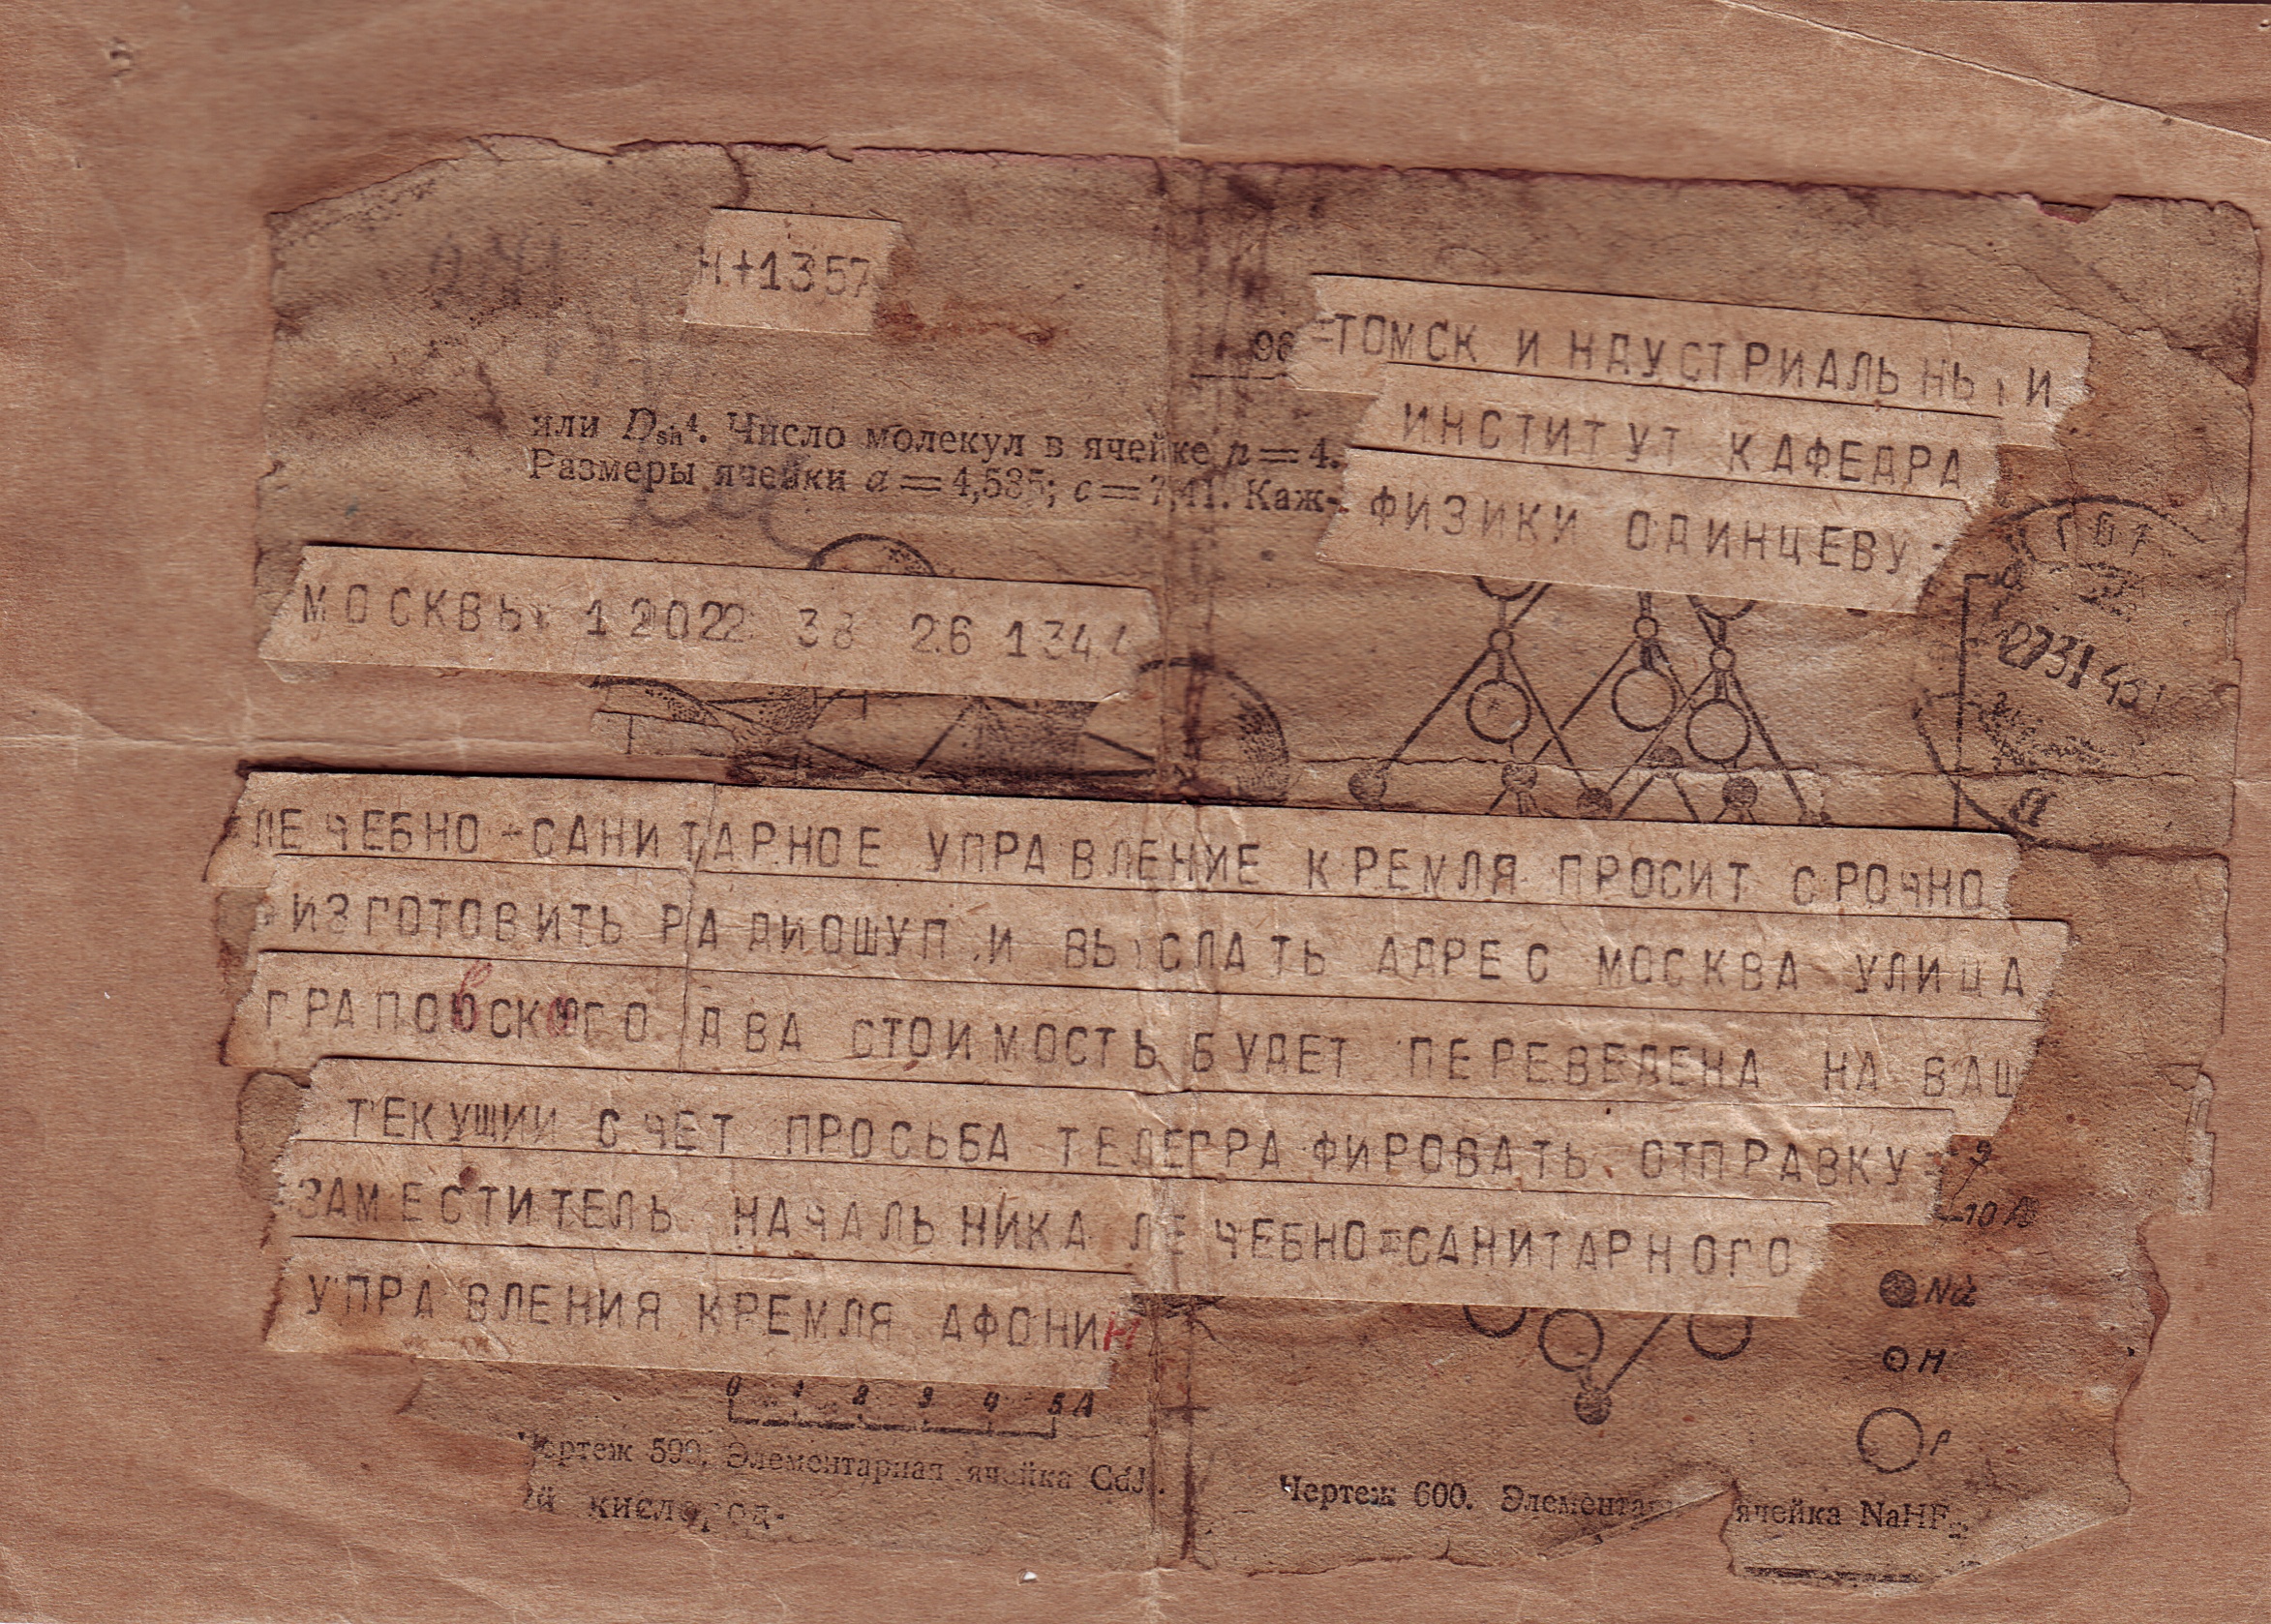 Н+1357
96 =ТОМСК ИНДУСТРИАЛЬНЫИ
ИНСТИТУТ КАФЕДРА
ФИЗИКИ ОДИНЦЕВУ-
или D₃ₕ⁴. Число молекул в ячейке n = 4.
Размеры ячейки a = 4,535; c = 7,41. Каж-
МОСКВЫ 12022 38 26 1344
=ЛЕЧЕБНО-САНИТАРНОЕ УПРАВЛЕНИЕ КРЕМЛЯ ПРОСИТ СРОЧНО
ИЗГОТОВИТЬ РАДИОЩУП И ВЫСЛАТЬ АДРЕС МОСКВА УЛИЦА
ГРАНОВСКОГО ДВА СТОИМОСТЬ БУДЕТ ПЕРЕВЕДЕНА НА ВАШ
ТЕКУЩИИ СЧЕТ ПРОСЬБА ТЕЛЕГРАФИРОВАТЬ ОТПРАВКУ=
ЗАМЕСТИТЕЛЬ НАЧАЛЬНИКА ЛЕЧЕБНО=САНИТАРНОГО
УПРАВЛЕНИЯ КРЕМЛЯ АФОНИН
10 Å
Na
H
F
0 1 2 3 4 5 Å
Чертеж 599. Элементарная ячейка CdJ₂.
кислород-
Чертеж 600. Элементарная ячейка NaHF₂.